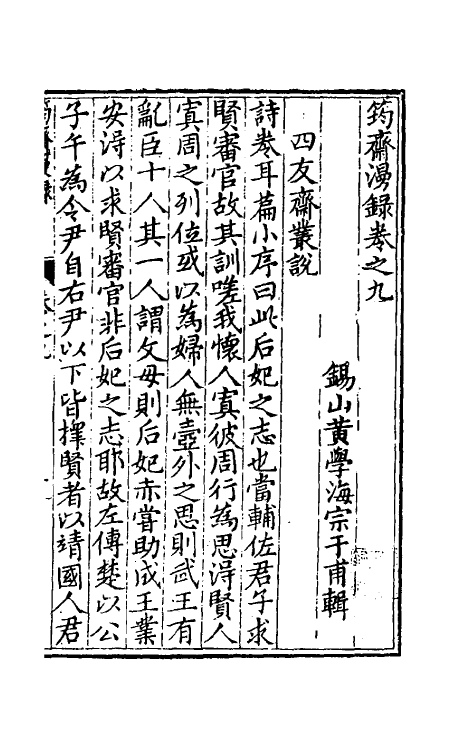 筠齋漫錄卷之九
錫山黃學海宗于甫輯
四友齋叢說
詩卷耳篇小序曰此后妃之志也當輔佐君子求
賢審官故其訓嗟我懷人寘彼周行為思淂賢人
寘周之列位或以為婦人無壼外之思則武王有
亂臣十人其一人謂文母則后妃亦嘗助成王業
安淂以求賢審官非后妃之志耶故左傳楚以公
子午為令尹自右尹以下皆擇賢者以靖國人君